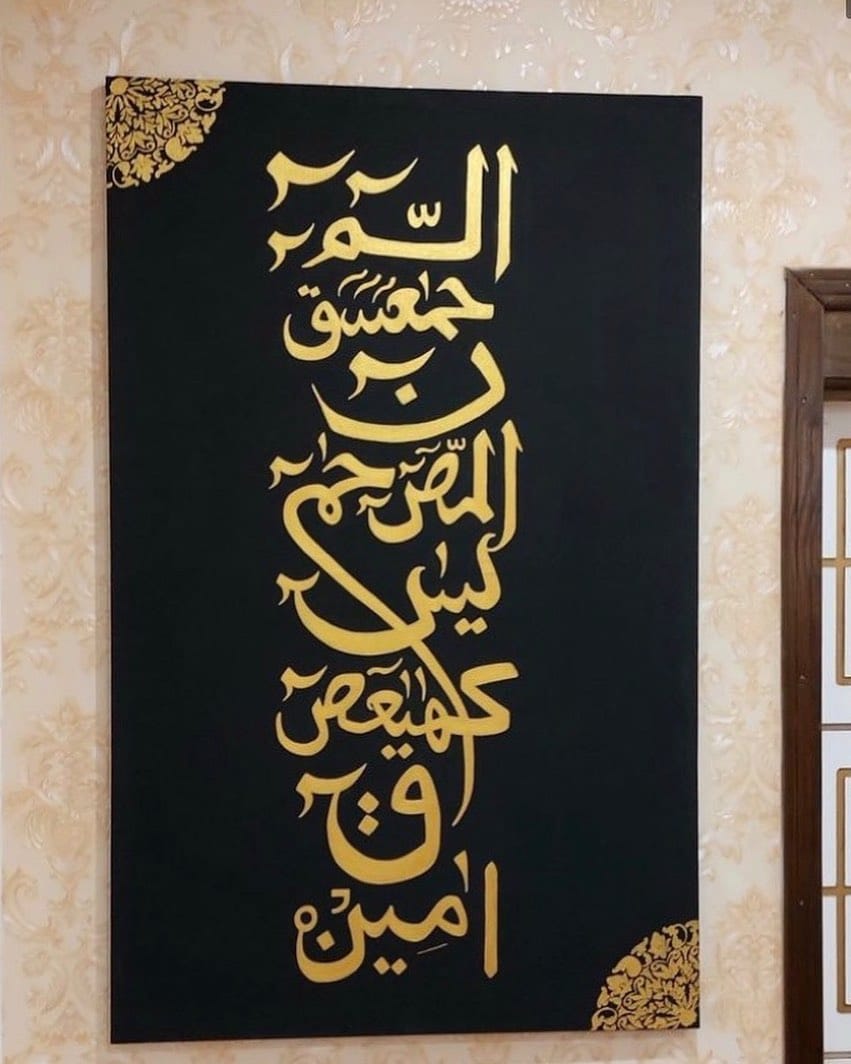 الٓمّٓ
حمٰعٓسٓقٓ
نٓ
المّٓصٓ حٰمٓ
يٰسٓ
كٓهٰيٰعٓصٓ
قٓ
اٰمِين